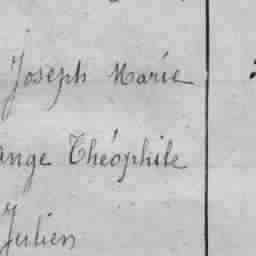 Joseph Marie
ange Théophile
Julien